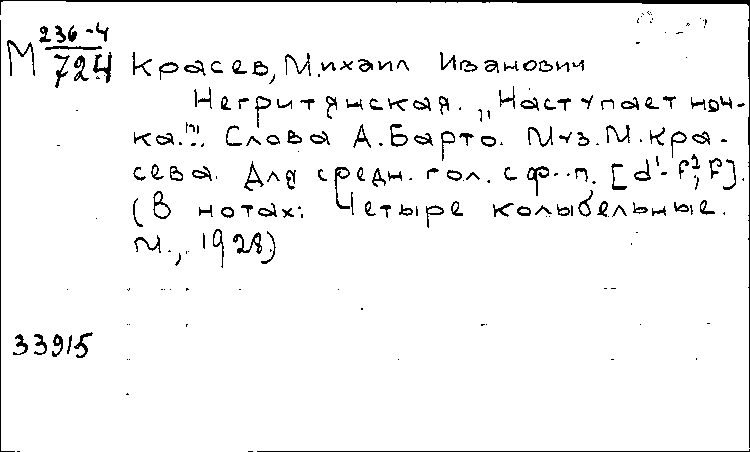 М 236-4
724 Красев, Михаил Иванович
Негритянская. „Наступает ноч-
ка...". Слова А. Барто. Муз. М. Кра-
сева. Для средн. гол. с ф.-п. [d¹-f²; F].
(В нотах: Четыре колыбельные.
М., 1928)
33915